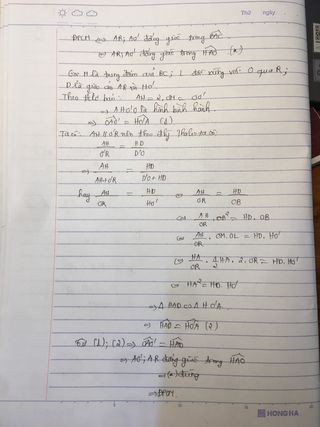 Thứ ngày
ĐPCM ⇔ AR; AO' đẳng giác trong BAC
⇔ AR; AO' đẳng giác trong HAO (*)
Gọi M là trung điểm của BC; L đối xứng với O qua R;
D là giao của AR và HO'
Theo kết bản: AH = 2.OM = OO'
⇒ AHO'O là hình bình hành
⇒ OAO' = HO'A (1)
Ta có: AH // O'R nên theo định lý Thales ta có
AH/O'R = HD/D'O
⇒ AH/AH+O'R = HD/D'O+HD
hay AH/OR = HD/HO' ⇔ AH/OR = HD/OB
⇔ AH/OR . OB² = HD. OB
⇔ AH/OR . OM. OL = HD. HO'
⇔ HA/OR . 1/2 HA. 2. OR = HD. HO'
⇔ HA² = HD. HO'
⇒ Δ HAD ∽ Δ HO'A
⇒ HAD = HO'A (2)
Từ (1); (2) ⇒ OAO' = HAD
⇒ AO', AR đẳng giác trong HAO
⇒ (*) đúng
⇒ ĐPCM
HONG HA